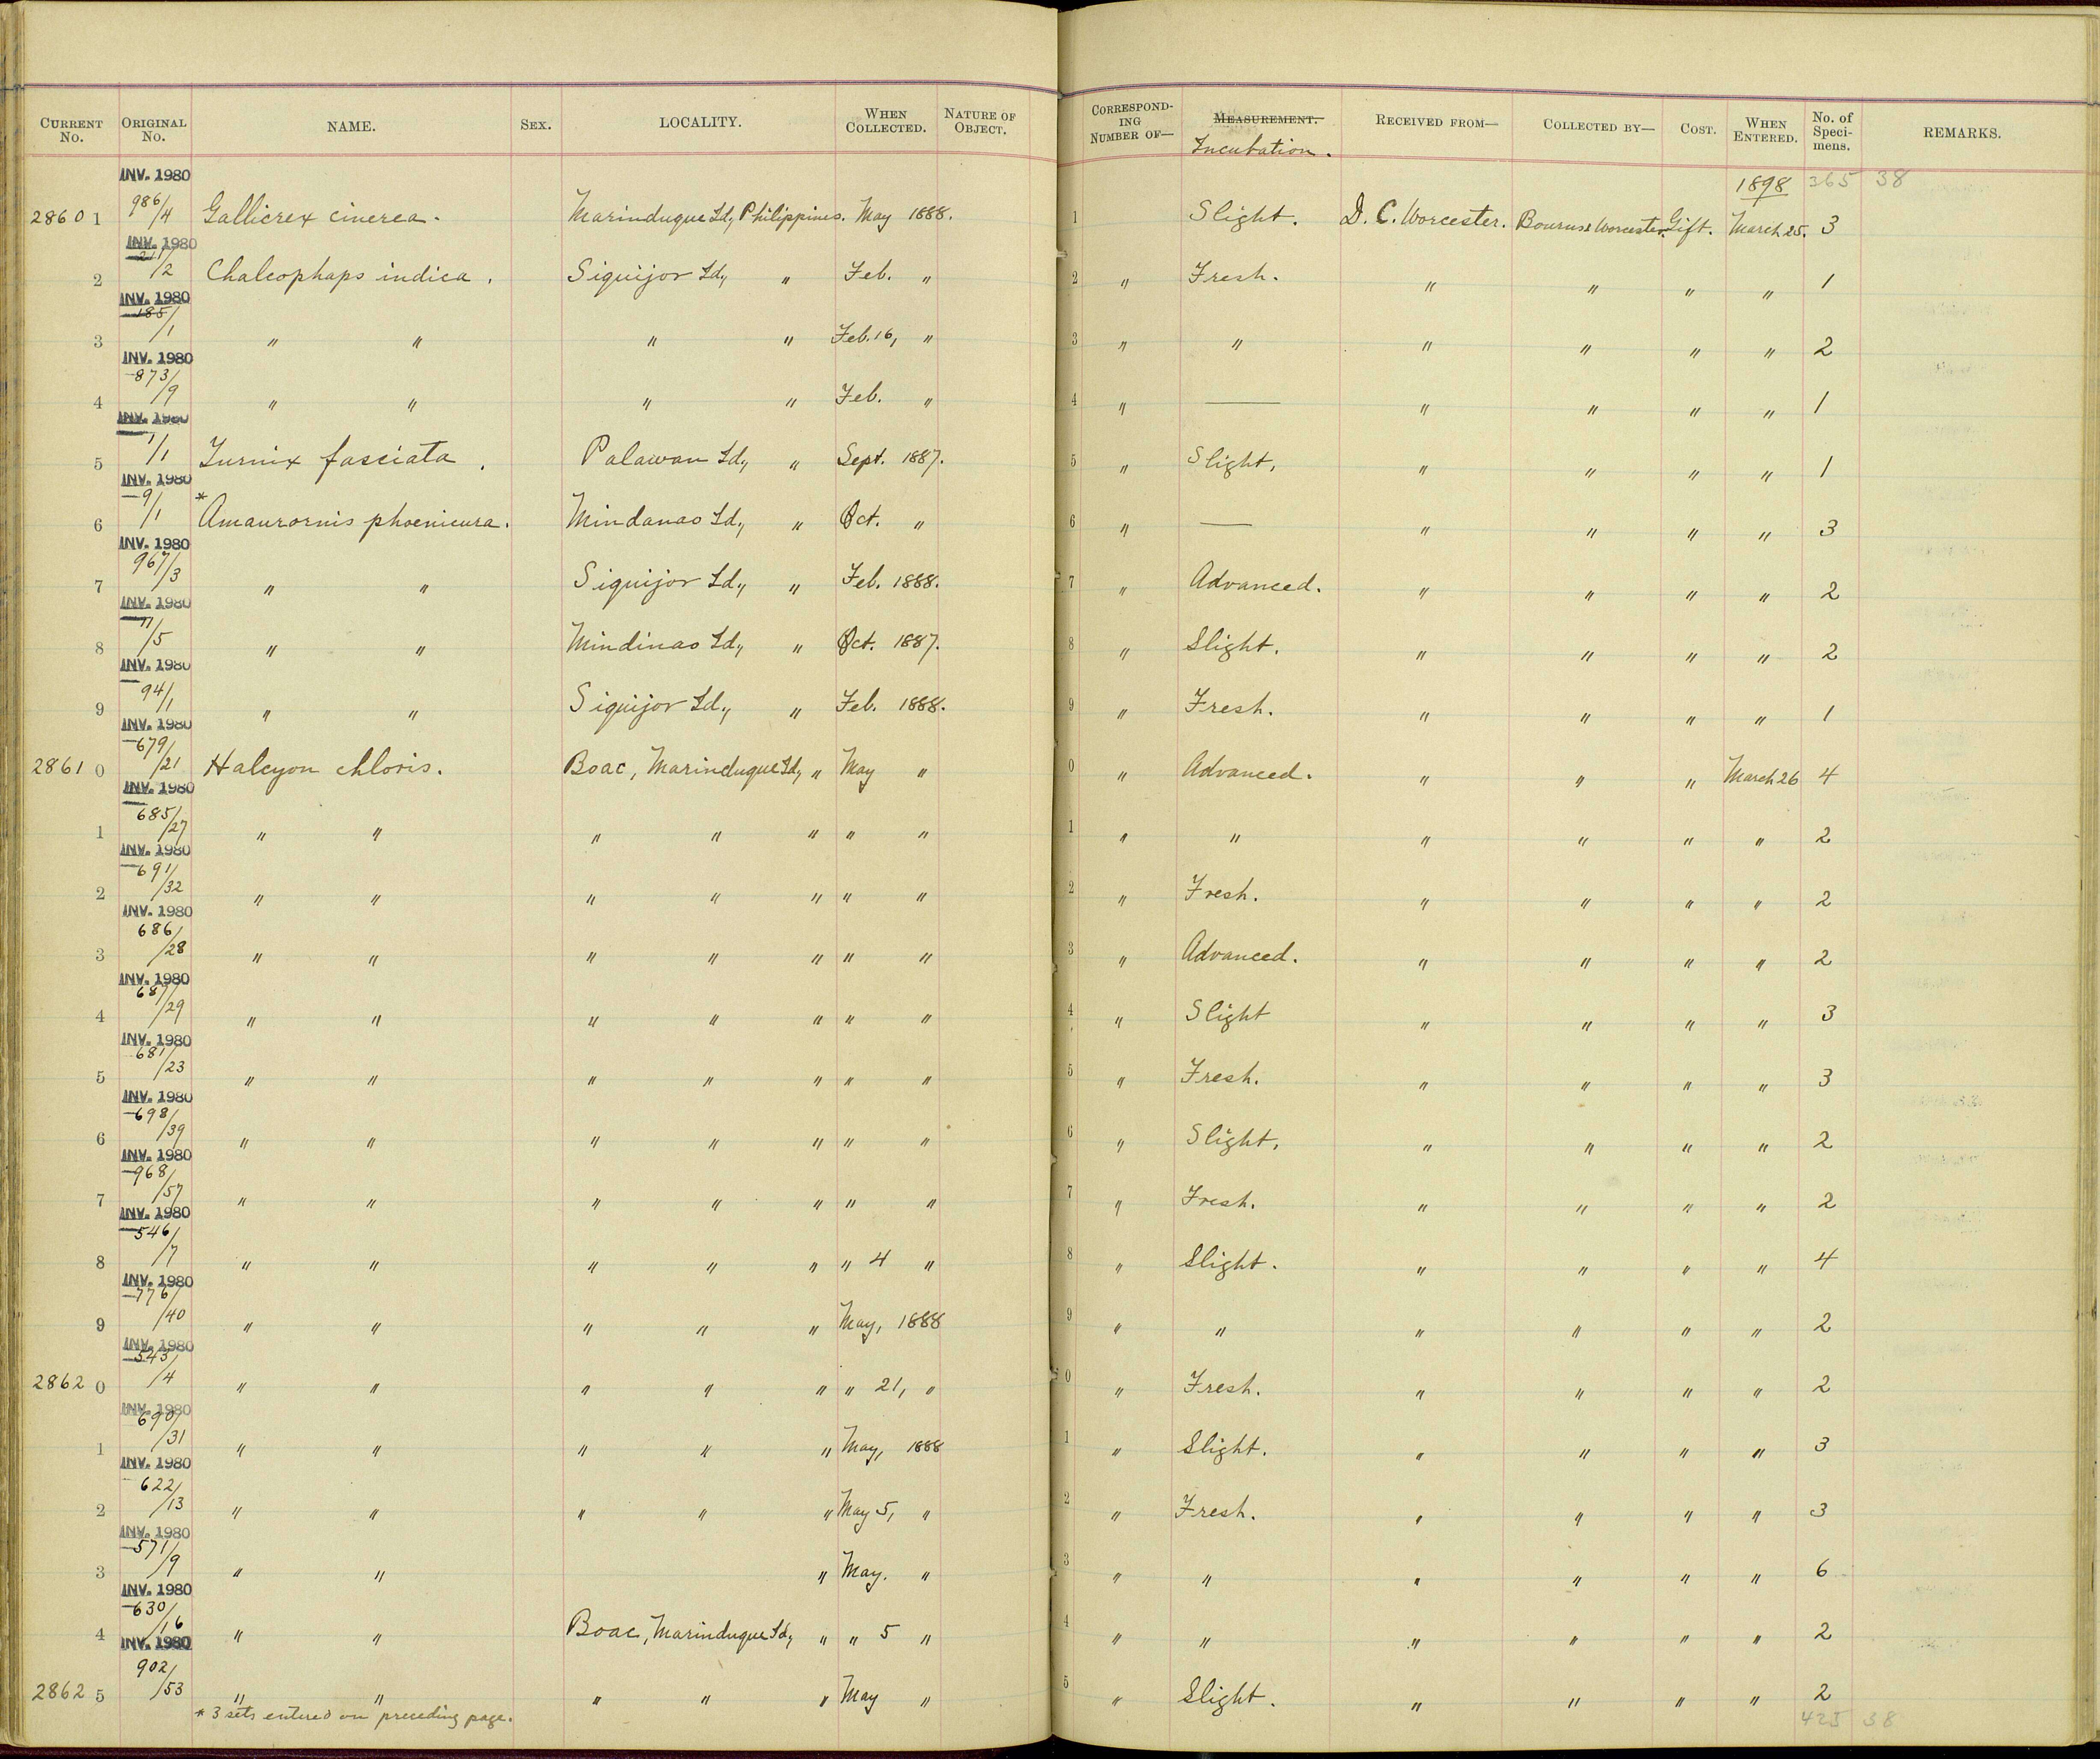 CURRENT No. ORIGINAL No. NAME. SEX. LOCALITY. WHEN COLLECTED. NATURE OF OBJECT. CORRESPONDING NUMBER OF— MEASUREMENT. Incubation. RECEIVED FROM— COLLECTED BY— COST. WHEN ENTERED. No. of Specimens. REMARKS.
INV. 1980 1898 365 38
28601 986/4 Gallicrex cinerea. Marinduque Id, Philippines. May 1888. 1 Slight. D. C. Worcester. Bourns & Worcester. Gift. March 25. 3
INV. 1980
2 /2 Chalcophaps indica. Siquijor Id, " Feb. " 2 " Fresh. " " " " 1
INV. 1980
3 185/1 " " " " Feb. 16, " 3 " " " " " " 2
INV. 1980
4 873/9 " " " " Feb. " 4 " — " " " " 1
INV. 1980
5 1/1 Turnix fasciata. Palawan Id, " Sept. 1887. 5 " Slight, " " " " 1
INV. 1980
6 9/1 * Amaurornis phoenicura. Mindanao Id, " Oct. " 6 " — " " " " 3
INV. 1980
7 967/3 " " Siquijor Id, " Feb. 1888. 7 " Advanced. " " " " 2
INV. 1980
8 /5 " " Mindinao Id, " Oct. 1887. 8 " Slight. " " " " 2
INV. 1980
9 94/1 " " Siquijor Id, " Feb. 1888. 9 " Fresh. " " " " 1
INV. 1980
28610 679/21 Halcyon chloris. Boac, Marinduque Id, " May " 0 " Advanced. " " " March 26 4
INV. 1980
1 685/27 " " " " " " " 1 " " " " " " 2
INV. 1980
2 691/32 " " " " " " " 2 " Fresh. " " " " 2
INV. 1980
3 686/28 " " " " " " " 3 " Advanced. " " " " 2
INV. 1980
4 687/29 " " " " " " " 4 " Slight " " " " 3
INV. 1980
5 681/23 " " " " " " " 5 " Fresh. " " " " 3
INV. 1980
6 698/39 " " " " " " " 6 " Slight, " " " " 2
INV. 1980
7 968/57 " " " " " " " 7 " Fresh. " " " " 2
INV. 1980
8 546/7 " " " " " " 4 " 8 " Slight. " " " " 4
INV. 1980
9 776/40 " " " " " May, 1888 9 " " " " " " 2
INV. 1980
28620 543/4 " " " " " " 21, " 0 " Fresh. " " " " 2
INV. 1980
1 690/31 " " " " " May, 1888 1 " Slight. " " " " 3
INV. 1980
2 622/13 " " " " " May 5, " 2 " Fresh. " " " " 3
INV. 1980
3 571/9 " " " May. " 3 " " " " " " 6
INV. 1980
4 630/16 " " Boac, Marinduque Id, " " 5 " 4 " " " " " " 2
INV. 1980
28625 902/53 " " " " " May " 5 " Slight. " " " " 2
* 3 sets entered on preceding page. 425 38